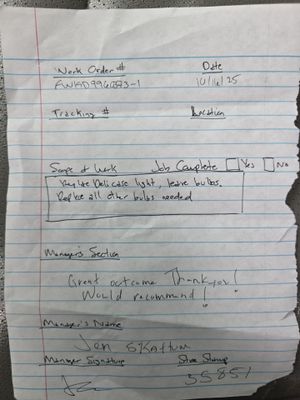 Work Order # Date
10/16/25
Tracking # Location
Scope of Work Job Complete Yes No
Replace Delicase light, leave bulbs.
Replace all other bulbs needed
Manager's Section
Great outcome Thank you!
Would recommend!
Manager's Name
Jen
Manager Signature Store Stamp
55851